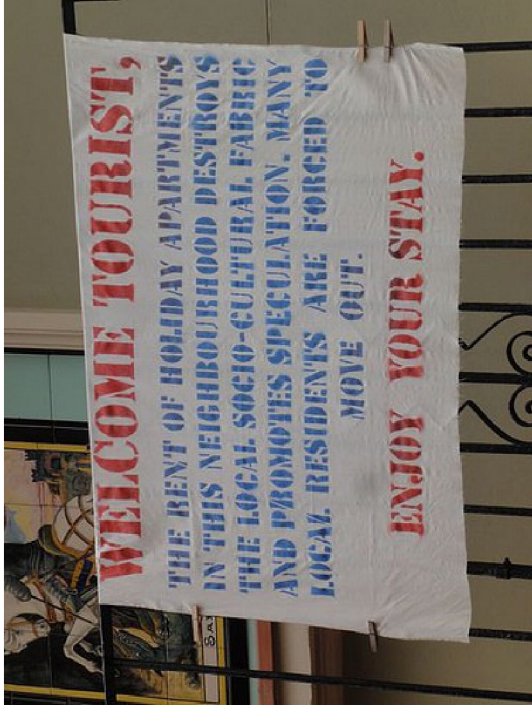 WELCOME TOURIST,
THE RENT OF HOLIDAY APARTMENTS
IN THIS NEIGHBOURHOOD DESTROYS
THE LOCAL SOCIO-CULTURAL FABRIC
AND PROMOTES SPECULATION. MANY
LOCAL RESIDENTS ARE FORCED TO
MOVE OUT.
ENJOY YOUR STAY.